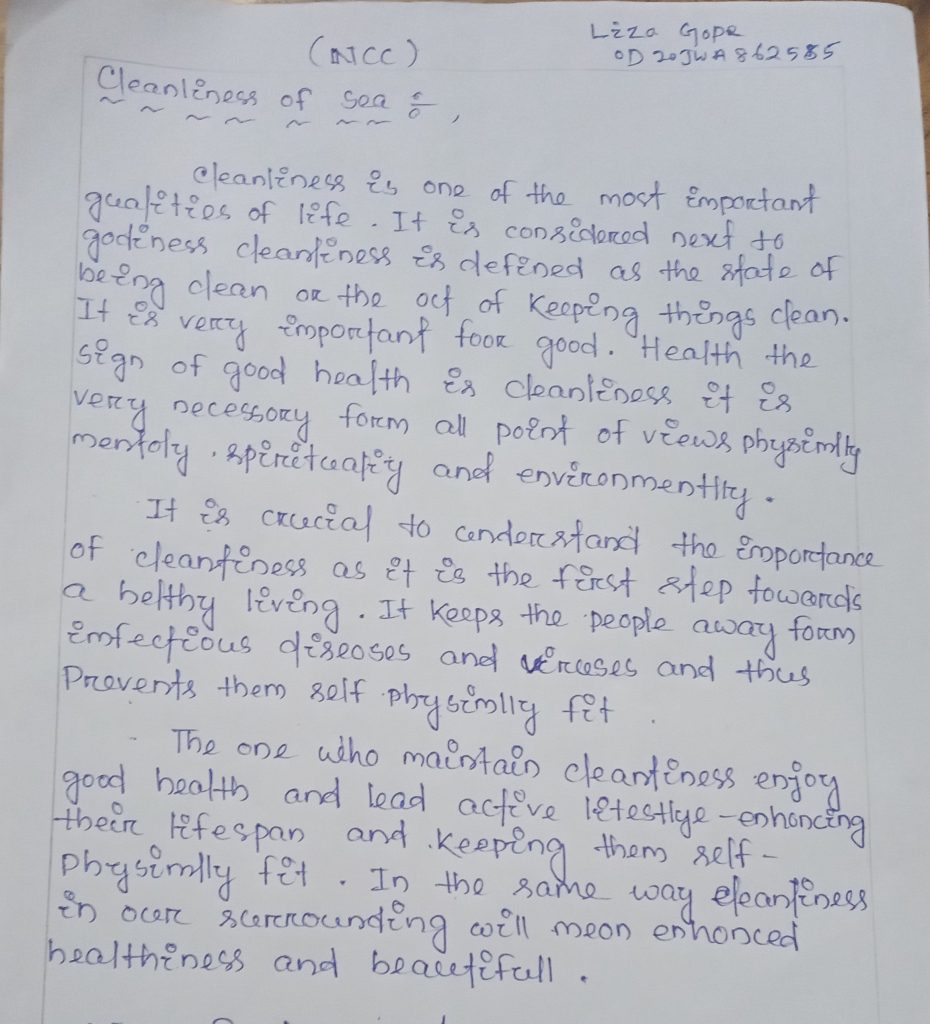 Liza Gope
(NCC)
OD20JWA862585
Cleanliness of sea ÷,
Cleanliness is one of the most important
qualities of life. It is considered next to
godiness cleanliness is defined as the state of
being clean or the act of Keeping things clean.
It is very important foor good. Health the
sign of good health is cleanliness it is
very necessory form all point of views physimlly
mentoly, spirituality and environmentlly.
It is crucial to understand the importance
of cleanliness as it is the first step towards
a helthy living. It Keeps the people away form
imfectious diseoses and viruses and thus
Prevents them self physimlly fit.
The one who maintain cleanliness enjoy
good health and lead active litestlye - enhoncing
their lifespan and Keeping them self -
physimlly fit. In the same way cleanliness
in our surrounding will meon enhonced
healthiness and beautifull.